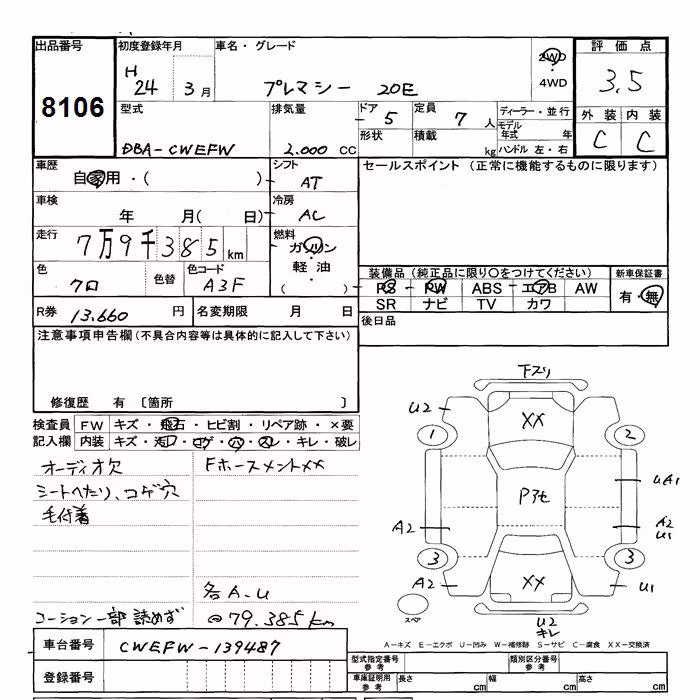 出品番号 初度登録年月 車名・グレード 2WD 評価点
8106 H 24 3月 プレマシー 20E 4WD 3.5
型式 排気量 ドア 5 定員 7人 ディーラー・並行 外装 内装
DBA-CWEFW 2,000 CC 形状 積載 kg モデル年式 年 C C
ハンドル 左・右
車歴 自家用・( ) シフト AT セールスポイント (正常に機能するものに限ります)
車検 年 月( 日) 冷房 AC
走行 7万9千385km 燃料 ガソリン・軽油 ( )
色 クロ 色替 色コード A3F 装備品 (純正品に限り○をつけてください) 新車保証書
PS PW ABS エアB AW 有・無
R券 13,660円 名変期限 月 日 SR ナビ TV カワ
注意事項申告欄(不具合内容等は具体的に記入して下さい) 後日品
修復歴 有 〔箇所 〕
検査員 FW キズ・飛石・ヒビ割・リペア跡・×要
記入欄 内装 キズ・汚れ・コゲ・穴・スレ・キレ・破レ
オーディオ欠 Fホースメント××
シートへたり、コゲ穴
毛付着
各A-U
コーション一部読めず @79.385km
下スリ
U2 ××
1 2
Pアセ UA1
A2 A2
U1
3 3
A2 ×× U1
スペア U2
キレ
車台番号 CWEFW-139487
A-キズ E-エクボ U-凹み W-補修跡 S-サビ C-腐食 XX-交換済
登録番号 型式指定番号 参考 類別区分番号 参考
車庫証明用 参考 長さ cm 幅 cm 高さ cm